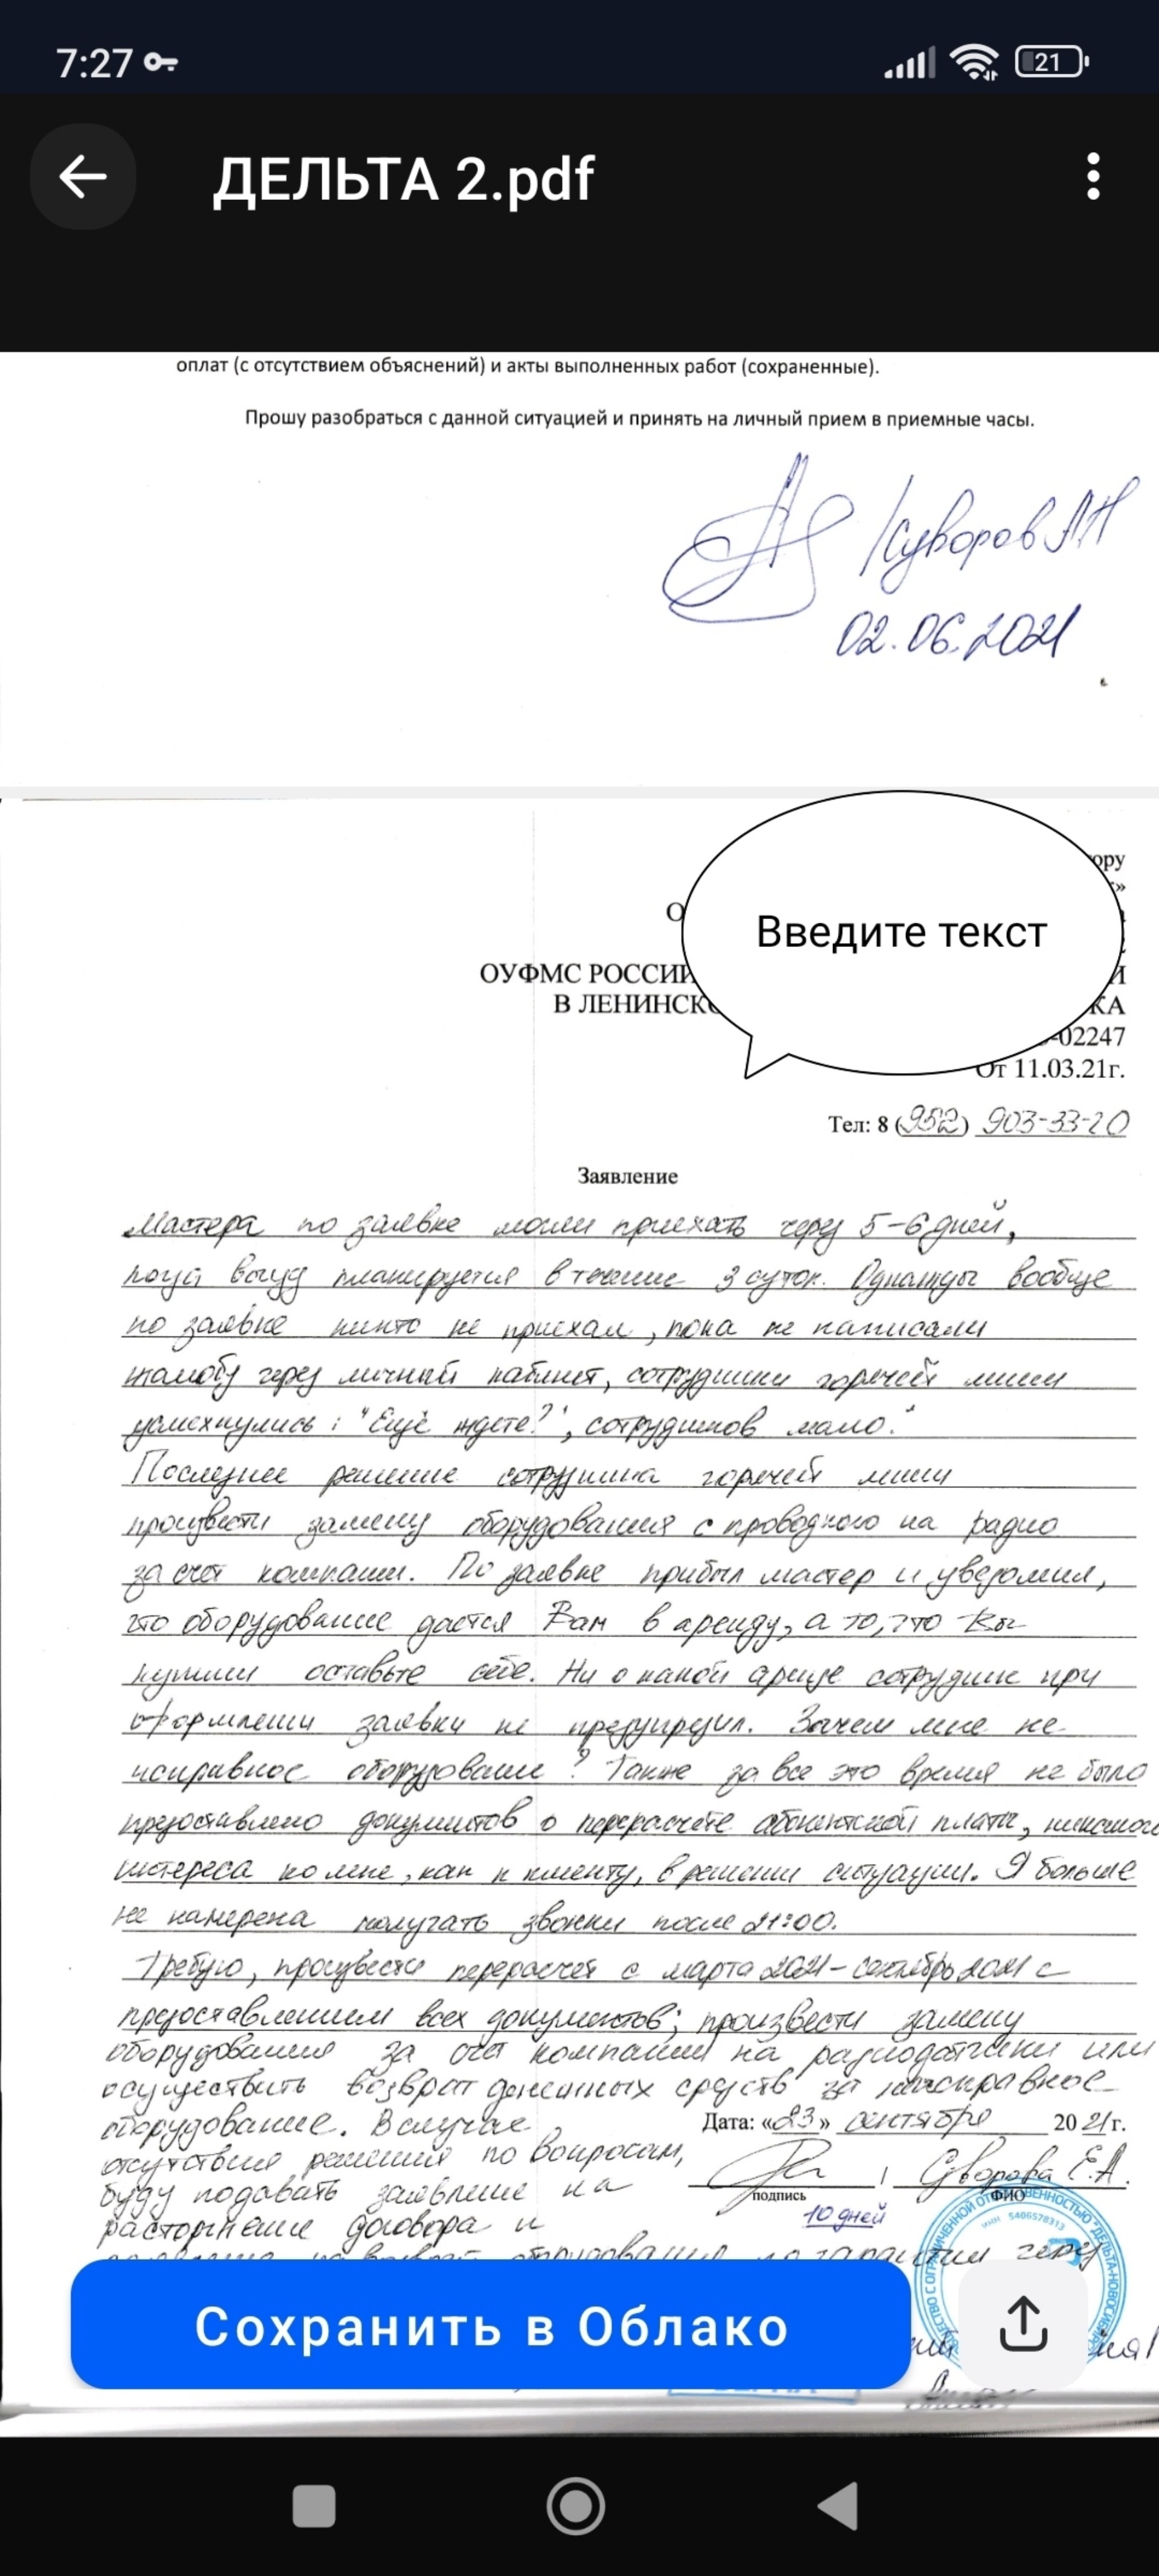 7:27
21
ДЕЛЬТА 2.pdf
оплат (с отсутствием объяснений) и акты выполненных работ (сохраненные).
Прошу разобраться с данной ситуацией и принять на личный прием в приемные часы.
/Суворов АН
02.06.2021
ору
»
О
Введите текст
ОУФМС РОССИИ
В ЛЕНИНСКО КА
-02247
От 11.03.21г.
Тел: 8 (952) 903-33-20
Заявление
Мастера по заявке могли приехать через 5-6 дней,
когда выезд планируется в течение 3 суток. Однажды вообще
по заявке никто не приехал, пока не написали
жалобу через личный кабинет, сотрудники горячей линии
усмехнулись: "Ещё ждете?", сотрудников мало."
Последнее решение сотрудника горячей линии
произвести замену оборудования с проводного на радио
за счет компании. По заявке прибыл мастер и уведомил,
что оборудование дается Вам в аренду, а то, что Вы
купили оставьте себе. Ни о какой аренде сотрудник при
оформлении заявки не предупредил. Зачем мне не-
исправное оборудование? Также за все это время не было
предоставлено документов о перерасчете абонентской платы, никакого
интереса ко мне, как к клиенту, в решении ситуации. Я больше
не намерена получать звонки после 21:00.
Требую, произвести перерасчет с марта 2021 - сентябрь 2021 с
предоставлением всех документов; произвести замену
оборудования за счет компании на радиодатчики или
осуществить возврат денежных средств за неисправное
оборудование. В случае
Дата: «23» сентября 2021г.
отсутствия решения по вопросам,
Суворова Е.А.
буду подавать заявление на
подпись
ФИО
10 дней
расторжение договора и
оборудования по гарантии через
ОБЩЕСТВО С ОГРАНИЧЕННОЙ ОТВЕТСТВЕННОСТЬЮ "ДЕЛЬТА-НОВОСИБИРСК
ИНН 5406578313
Сохранить в Облако